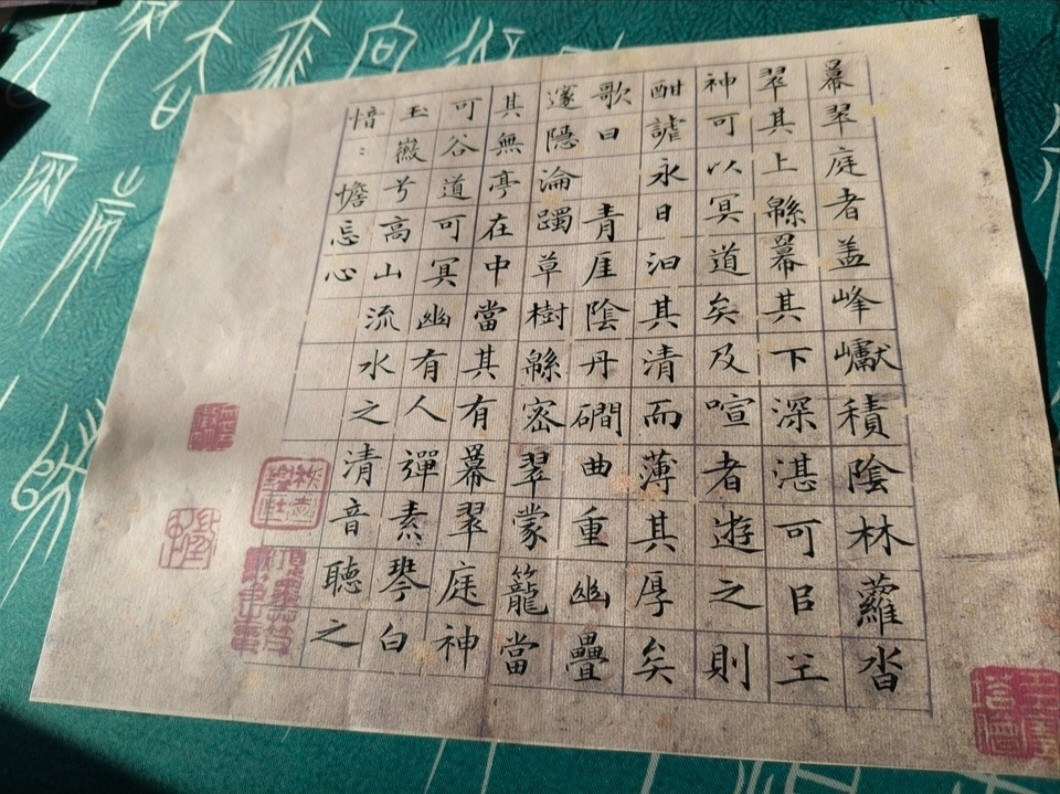 羃翠庭者盖峰巘積陰林蘿沓
翠其上緜羃其下深湛可㠯王
神可以冥道矣及喧者遊之則
酣謔永日汩其清而薄其厚矣
歌曰　青厓陰丹磵曲重幽疊
邃隱淪躅草樹緜密翠蒙籠當
其無亭在中當其有羃翠庭神
可谷道可冥幽有人彈素琴白
玉徽兮高山流水之清音聽之
愔：憺忘心